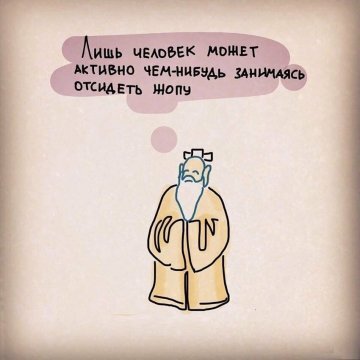 Лишь человек может
активно чем-нибудь занимаясь
отсидеть жопу